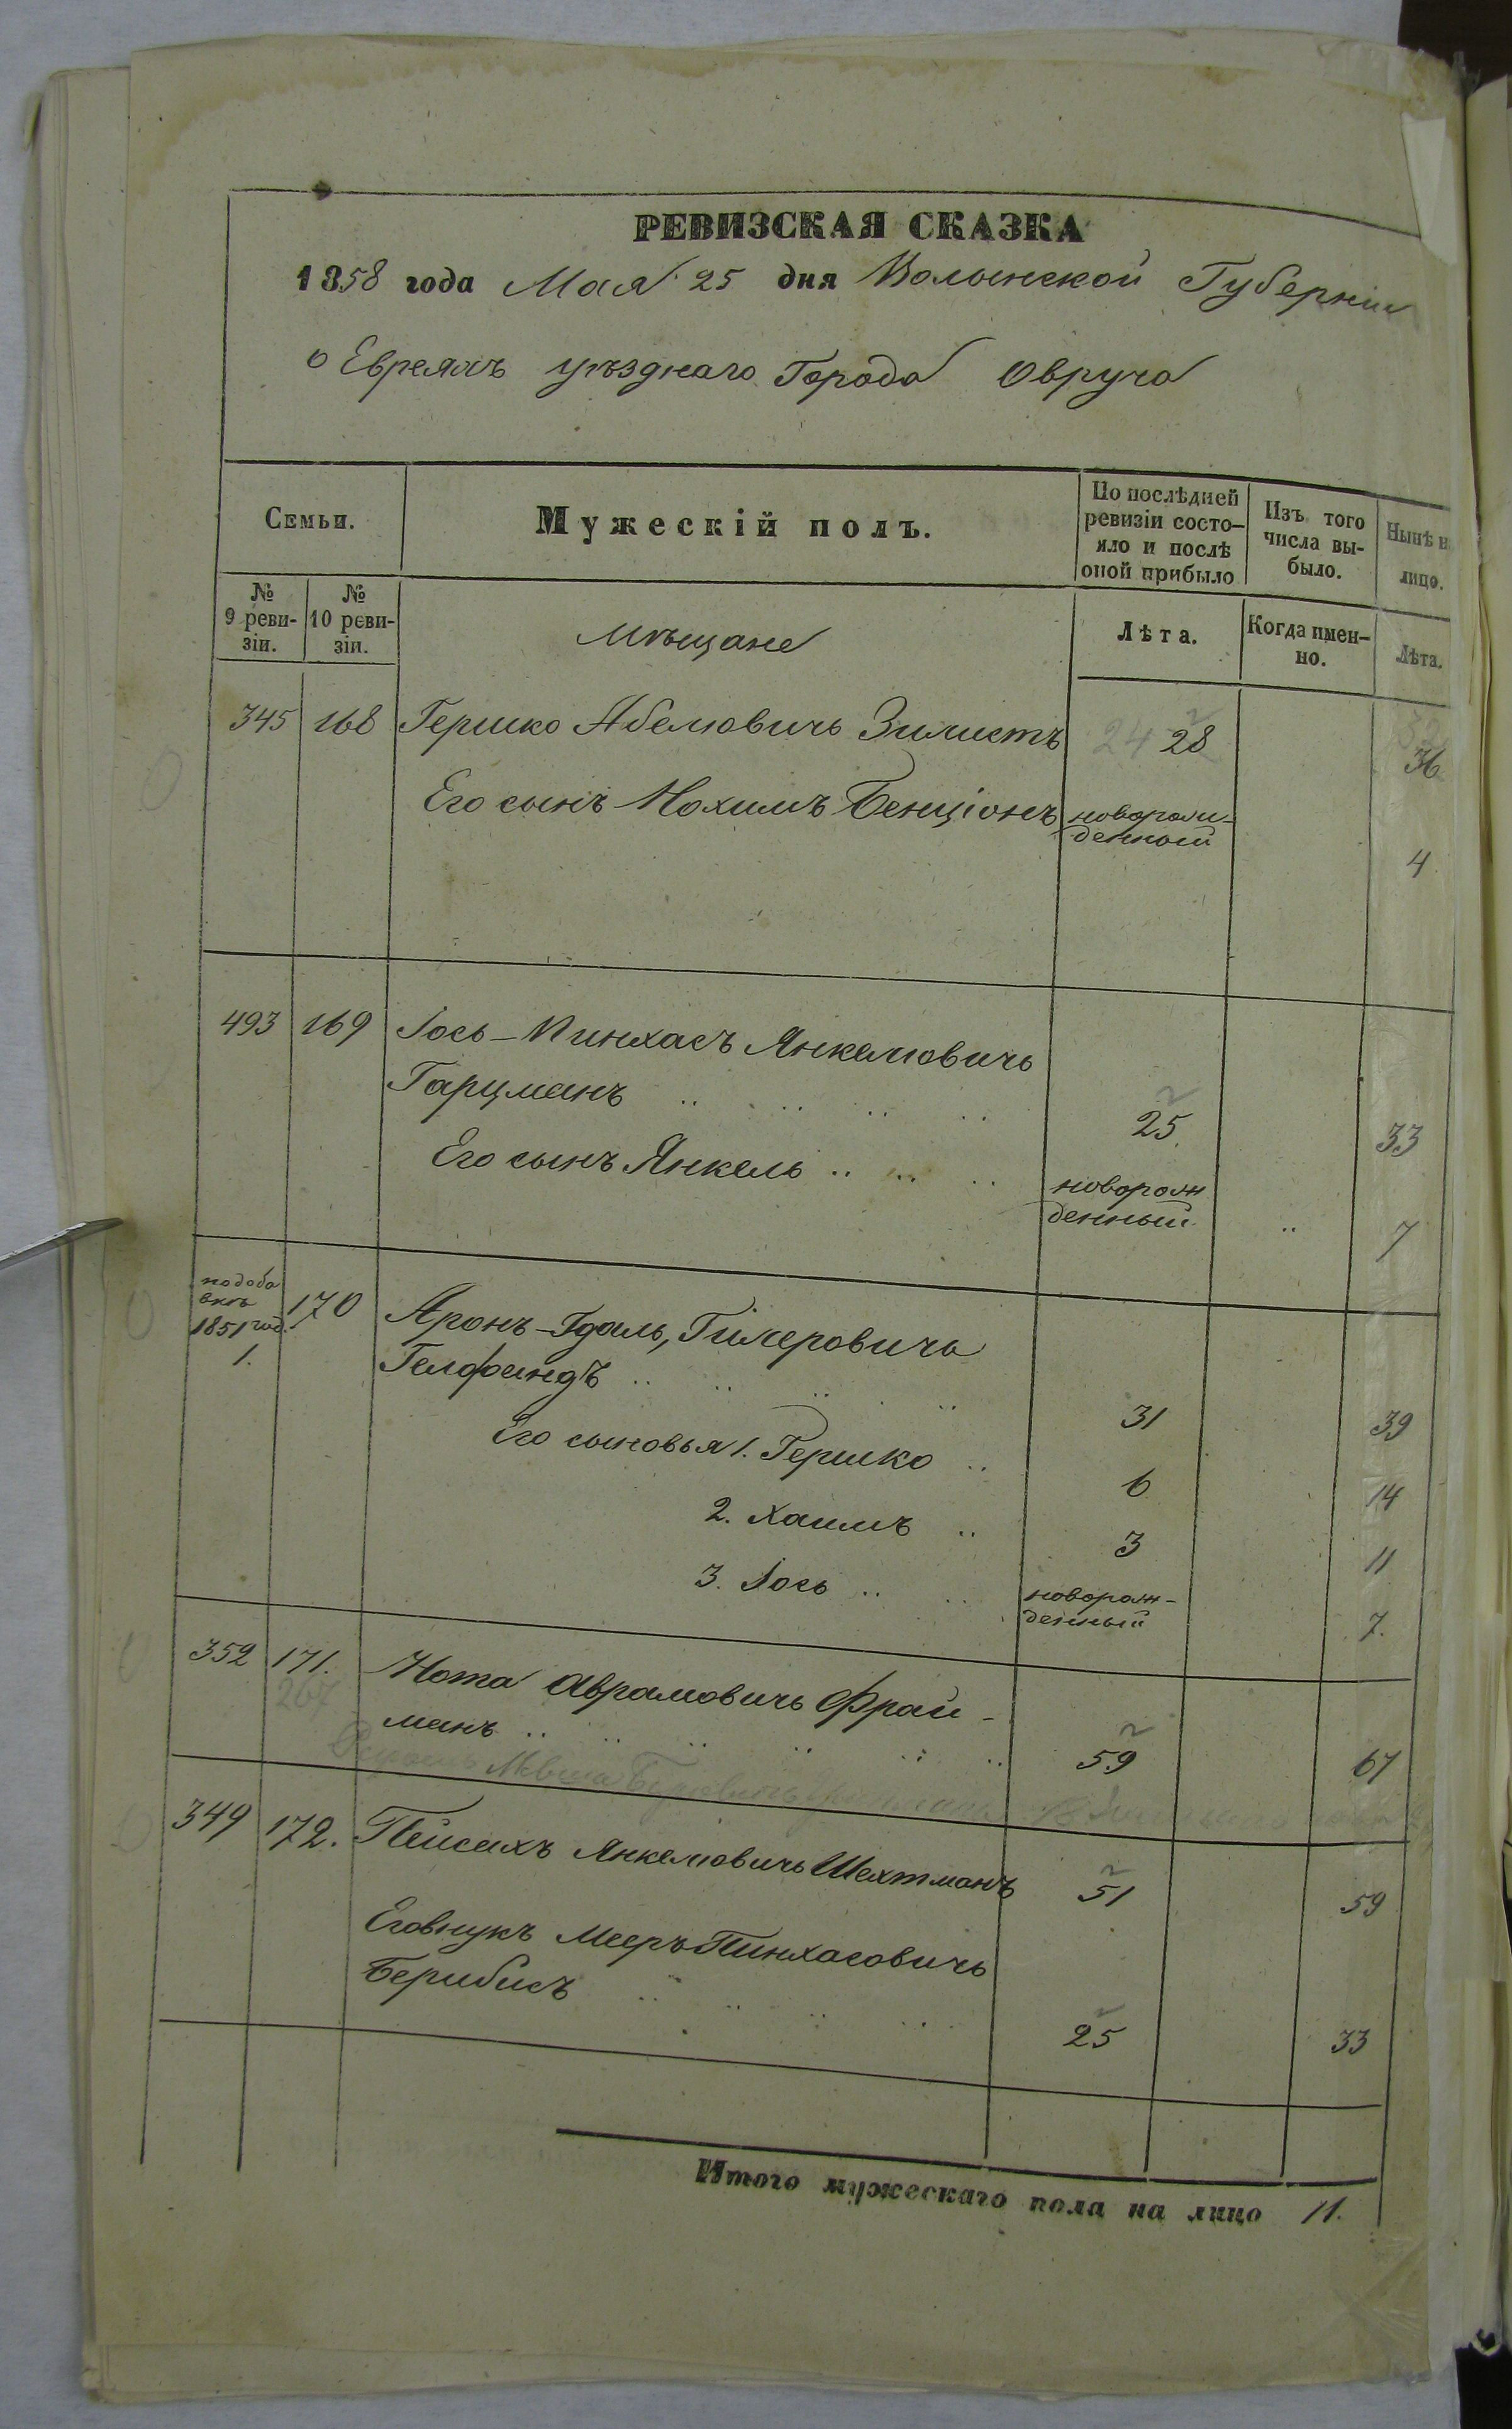 РЕВИЗСКАЯ СКАЗКА
1858 года Мая 25 дня Волынской Губерніи
о Евреяхъ уѣзднаго Города Овруча
Семьи.
Мужескій полъ.
По послѣдней
ревизіи состо-
яло и послѣ
оной прибыло
Изъ того
числа вы-
было.
Нынѣ н
лицо.
№
9 реви-
зіи.
№
10 реви-
зіи.
Мѣщане
Лѣта.
Когда имен-
но.
Лѣта.
345 168 Гершко Абелювичь Зилистъ 24 28 36
Его сынъ Нохимъ Бенціонъ новорож-
денный 4
493 169 Іось-Пинхасъ Янкелювичь
Гарцманъ .. .. .. .. 25 33
Его сынъ Янкель .. .. .. новорож
денный .. 7
1851 год.
1.
170 Аронъ-Гдаль, Гилеровичь
Гелфандъ .. .. .. .. 31 39
Его сыновья 1. Гершко .. 6 14
2. Хаимъ .. 3 11
3. Іось .. .. новорож-
денный 7.
352 171. Нота Аврамовичь Фрай-
267
манъ .. .. .. .. .. .. 59 67
349 172. Пейсахъ Янкелювичь Шехтманъ 51 59
Его внукъ Мееръ Пинхасовичь
Берибисъ .. .. .. .. .. 25 33
Итого мужескаго пола на лицо 11.